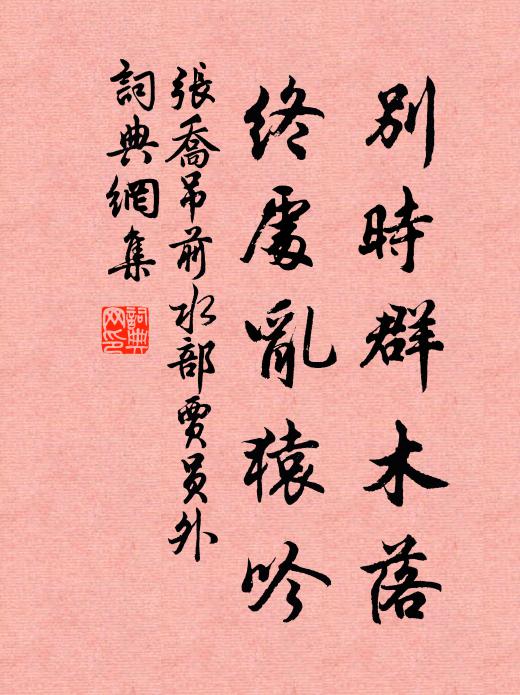 別時群木落
終處亂猿吟
張喬吊前水部賈員外
詞典網集
詞典網印